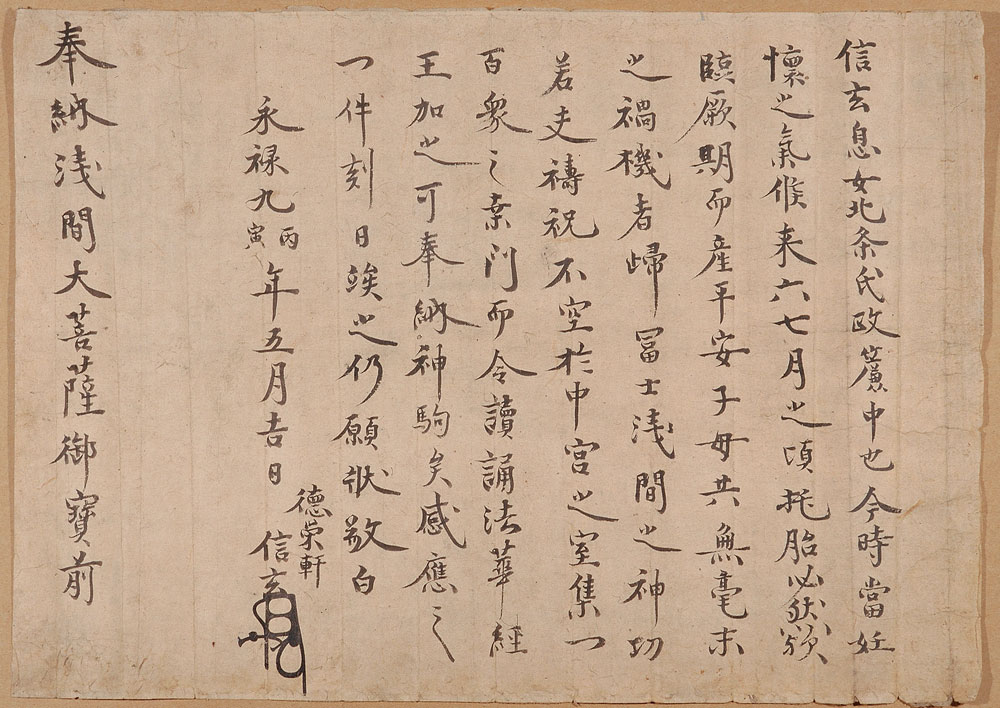 信玄息女北条氏政簾中也今時當妊
懐之氣候来六七月之頃托胎必然歟
臨厥期而産平安子母共無毫末
之禍機者歸冨士浅間之神切
若夫禱祝不空於中宮之室集一
百衆之桒門而令讀誦法華經
王加之可奉納神駒矣感應之
一件刻日竢之仍願状敬白
永禄九丙寅年五月吉日
德榮軒
信玄
奉納浅間大菩薩御寶前